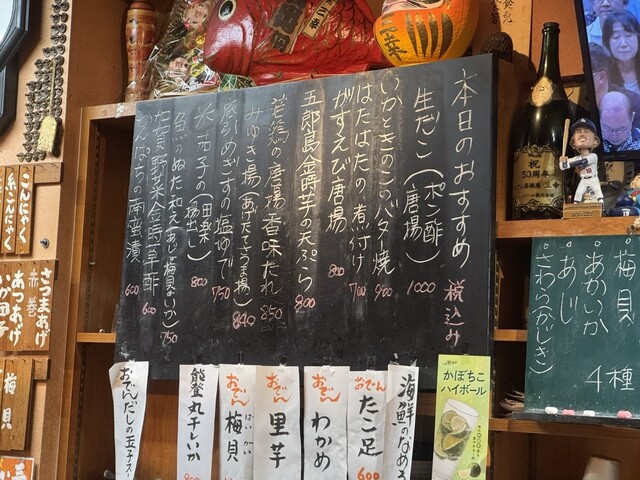 本日のおすすめ 税込み
生だこ(ポン酢 唐揚) 1000
いかときのこのバター焼 900
はたはたの煮付け 700
がすえび唐揚 800
五郎島金時芋の天ぷら 800
若鶏の唐揚香味だれ 850
みゆき揚(あげたてさつま揚) 840
底引めぎすの塩ゆで 750
水茄子の(田楽 揚出し) 800
魚のぬた和え(あじと梅貝 赤いか) 750
加賀野菜金時草酢 600
かんぱちの南蛮漬 600
こんにゃく
糸こんにゃく
さつまあげ
赤巻
あつあげ
梅貝
おでんだしの玉子スー
能登丸干しいか
おでん 梅貝
ばいがい
おでん 里芋
おでん わかめ
おでん たこ足 600
海鮮のなめろ
かぼちこ
ハイボール
祝
50周年
梅貝
あかいか
あじ
さわら(かじき)
4種